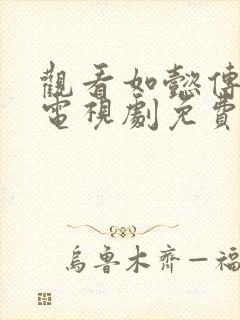 觀看如懿傳
電視劇免費
烏魯木齊—福